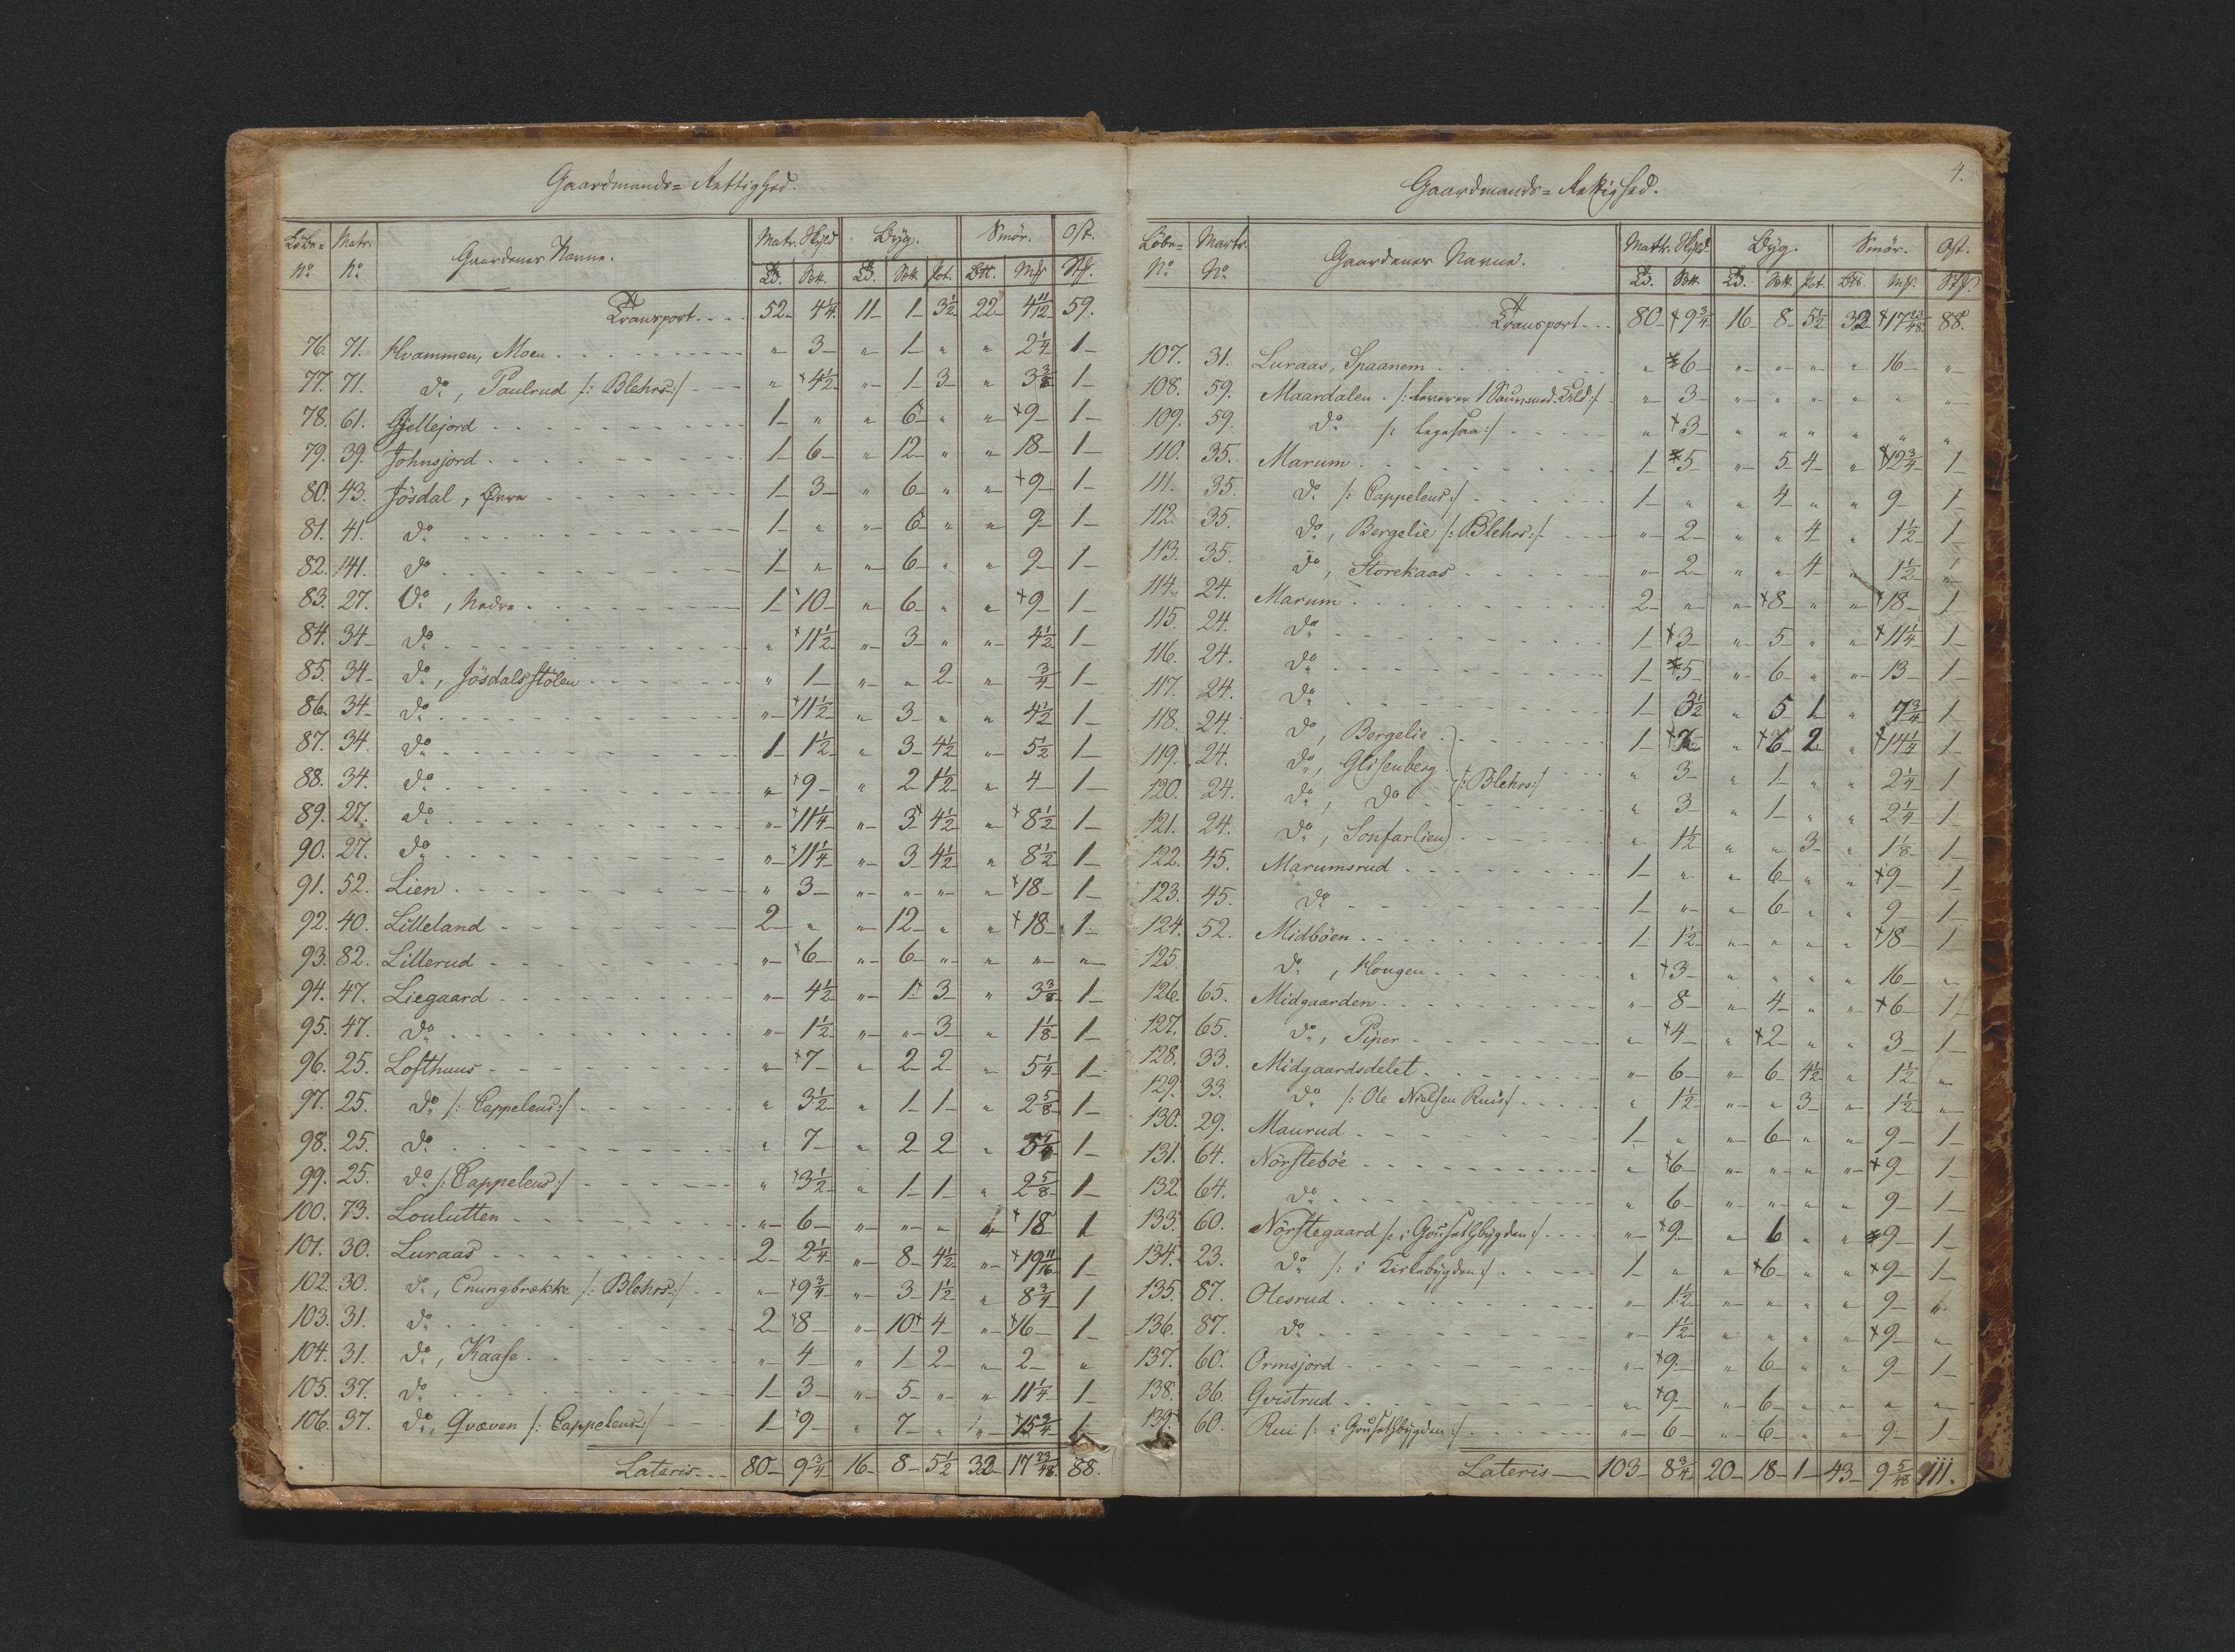 Gaardmands=Rettighed.
Löbe= Matr. Gaardenes Navne. Matr. Skyld Byg. Smör. Ost.
No No Ld. Sett. Ld. Sett. Pot. Btt. Mk St.
Transport 52 4 1/4 11 1 3 1/2 22 4 11/12 59.
76. 71. Kvammen, Moen " 3 " 1 " " 2 1/4 1
77. 71. do, Paulrud /: Blehrs :/ " 4 1/2 " 1 3 " 3 3/8 1
78. 61. Gjellejord 1 " " 6 " " 9 1
79. 39. Johnsjord 1 6 " 12 " " 18 1
80. 43. Jösdal, Övre 1 3 " 6 " " 9 1
81. 41. do 1 " " 6 " " 9 1
82. 141. do 1 " " 6 " " 9 1
83. 27. Do, Nedre 1 10 " 6 " " 9 1
84. 34 do " 11 1/2 " 3 " " 4 1/2 1
85. 34 do, Jösdalsstölen " 1 " " 2 " 3/4 1
86. 34 do " 11 1/2 " 3 " " 4 1/2 1
87. 34. do 1 1 1/2 " 3 4 1/2 " 5 1/2 1
88. 34. do " 9 " 2 1 1/2 " 4 1
89. 27. do " 11 1/4 " 3 4 1/2 " 8 1/2 1
90. 27. do " 11 1/4 " 3 4 1/2 " 8 1/2 1
91. 52. Lien " 3 " " " " 18 1
92. 40. Lilleland 2 " " 12 " " 18 1
93. 82. Lillerud " 6 " 6 " " " "
94. 47. Liegaard " 4 1/2 " 1 3 " 3 3/8 1
95. 47. do " 1 1/2 " " 3 " 1 1/8 1
96. 25. Lofthuus " 7 " 2 2 " 5 1/4 1
97. 25. do /: Cappelens :/ " 3 1/2 " 1 1 " 2 5/8 1
98. 25. do " 7 " 2 2 " 5 1/4 1
99. 25. do /: Cappelens :/ " 3 1/2 " 1 1 " 2 5/8 1
100. 73. Loulutten " 6 " " " " 18 1
101. 30. Luraas 2 2 1/4 " 8 4 1/2 " 19 11/16 1
102. 30. do, Cnungbrække /: Blehrs :/ " 9 3/4 " 3 1 1/2 " 8 3/4 1
103. 31. do 2 8 " 10 4 " 16 1
104. 31. do, Kaase " 4 " 1 2 " 2 "
105. 37. do 1 3 " 5 " " 11 1/4 1
106. 37. do, Qvæven /: Cappelens :/ 1 9 " 7 " " 15 3/4 1
Lateris 80 9 3/4 16 8 5 1/2 32 17 23/48 88.
4.
Gaardmands=Rettighed.
Löbe= Martr. Gaardenes Navne. Mattr. Skyld. Byg. Smör. Ost.
No No Ld. Sett. Ld. Sett. Pot. Btt. Mk. St.
Transport 80 9 3/4 16 8 5 1/2 32 17 23/48 88.
107. 31. Luraas, Spaanem " 6 " " " " 16 "
108. 59. Maardalen. /: leverer 1 :/ " 3 " " " " " "
109. 59. do " 3 " " " " " "
110. 35. Marum 1 5 " 5 4 " 12 3/4 1
111. 35. do /: Cappelens :/ 1 " " 4 " " 9 1
112. 35. do, Bergelie /: Blehrs :/ " 2 " " 4 " 1 1/2 1
113. 35. do, Storekaas " 2 " " 4 " 1 1/2 "
114. 24. Marum 2 " " 8 " " 18 1
115. 24. do 1 3 " 5 " " 11 1/4 1
116. 24. do 1 5 " 6 " " 13 1
117. 24. do 1 3 1/2 " 5 1 " 7 3/4 1
118. 24. do, Bergelie 1 7 " 6 2 " 14 1/4 1
119. 24. do, Glisenberg /: Blehrs :/ " 3 " 1 " " 2 1/4 1
120. 24. do, do " 3 " 1 " " 2 1/4 1
121. 24. do, Sonfarlien " 1 1/2 " " 3 " 1 1/8 1
122. 45. Marumsrud 1 " " 6 " " 9 1
123. 45. do 1 " " 6 " " 9 1
124. 52. Midböen 1 1 1/2 " " " " 18 1
125. do, Hougen " 3 " " " " 16 "
126. 65. Midgaarden " 8 " 4 " " 6 1
127. 65. do, Piper " 4 " 2 " " 3 1
128. 33. Midgaardsdelet " 6 " 6 4 1/2 " 1 1/2 "
129. 33. do /: Ole Nielsen Ruis :/ " 1 1/2 " " 3 " 1 1/2 "
130. 29. Maurud 1 " " 6 " " 9 1
131. 64. Nörsteböe " 6 " " " " 9 1
132. 64. do " 6 " " " " 9 1
133. 60. Nörstegaard /: i Gousethbygden :/ " 9 " 6 " " 9 1
134. 23. do /: i Kirkebygden :/ 1 " " 6 " " 9 1
135. 87. Olesrud " 1 1/2 " " " " 9 "
136. 87. do " 1 1/2 " " " " 9 "
137. 60. Ormsjord " 9 " 6 " " 9 1
138. 36. Qvistrud " 9 " 6 " " " "
139. 60. Rui /: i Gousethbygden :/ " 6 " 6 " " 9 1
Lateris 103 8 3/4 20 18 1 43 9 5/48 111.